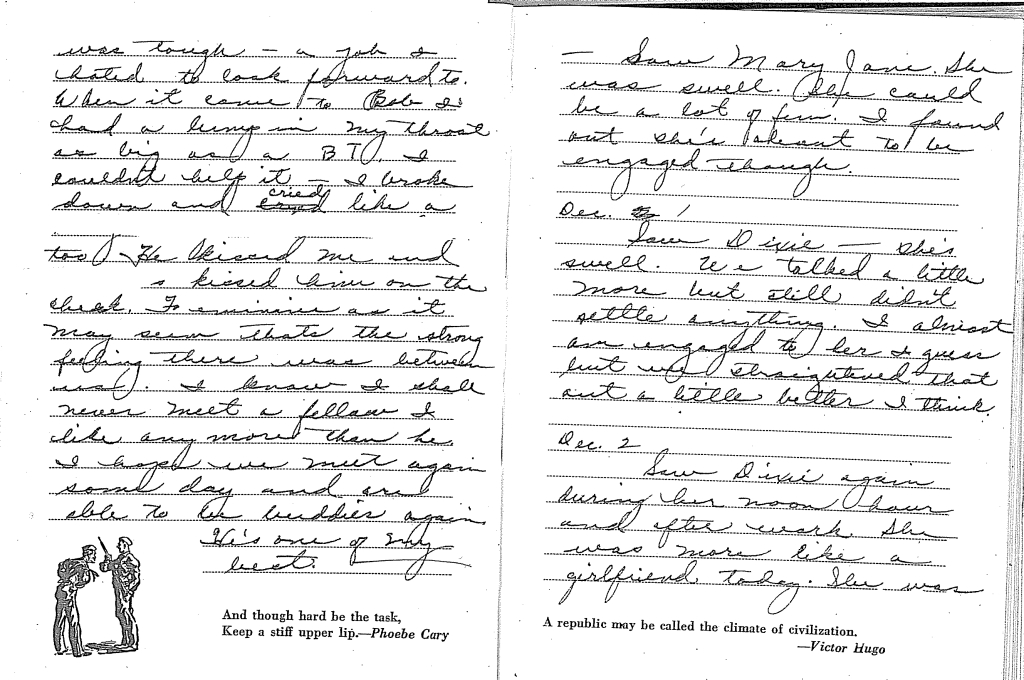 was tough — a job I
hated to look forward to.
When it came to Bob I
had a lump in my throat
as big as a BT. I
couldn't help it — I broke
down and cried like a
too) He kissed me and
kissed him on the
cheek. Feminine as it
may seem thats the strong
feeling there was between
us. I know I shall
never meet a fellow I
like any more than he.
I hope we meet again
some day and are
able to be buddies again
He's one of my
best.
And though hard be the task,
Keep a stiff upper lip.—Phoebe Cary
— Saw Mary Jane. She
was swell. She could
be a lot of fun. I found
out she's about to be
engaged though.
Dec. 1
Saw Dixie — she's
swell. We talked a little
more but still didn't
settle anything. I almost
am engaged to her I guess
but we straightened that
out a little better I think.
Dec. 2
Saw Dixie again
during her noon hour
and after work. She
was more like a
girlfriend today. She was
A republic may be called the climate of civilization.
—Victor Hugo